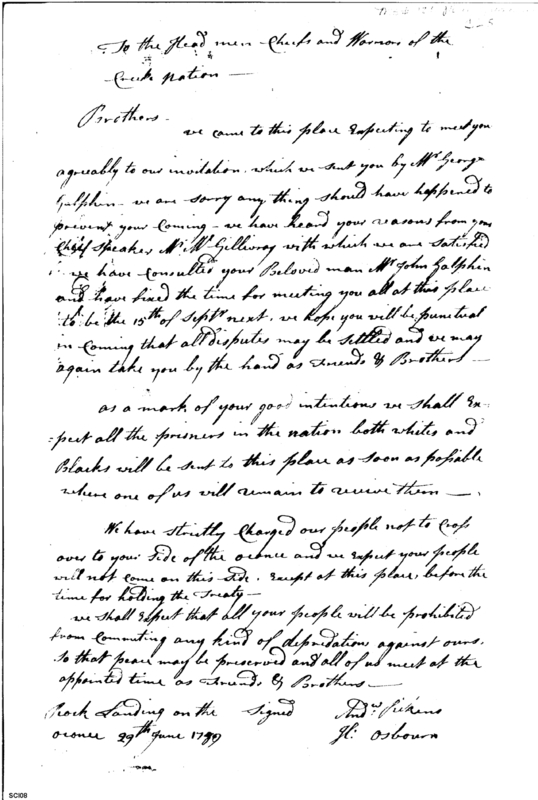 To the Head men Cheefs and Warriors of the
Creek Nation —
Brothers —
we came to this place Expecting to meet you
agreeably to our invitation, which we sent you by Mr. George
Galphin — we are sorry any thing should have happened to
prevent your Coming — we have heard your reasons from your
Chief Speaker Mr. McGillivroy with which we are satisfied
we have Consulted your Beloved man Mr. John Galphin
and have fixed the time for meeting you all at this place
to be the 15th of Septr. next, we hope you will be punctual
in Coming that all disputes may be settled and we may
again take you by the hand as Friends & Brothers —
as a mark of your good intentions we shall Ex-
-pect all the prisners in the nation both whites and
Blacks will be sent to this place as soon as possable
where one of us will remain to receive them —
We have strictly Charged our people not to Cross
over to your side of the oconee and we Expect your people
will not come on this side. Except at this place, before the
time for holding the Treaty —
we shall Expect that all your people will be prohibited
from Commiting any kind of depredation against ours,
so that peace may be preserved and all of us meet at the
appointed time as Friends & Brothers —
Rock Landing on the Signed Andw. Pickens
oconee 29th June 1789 H: Osbourn
SCI08